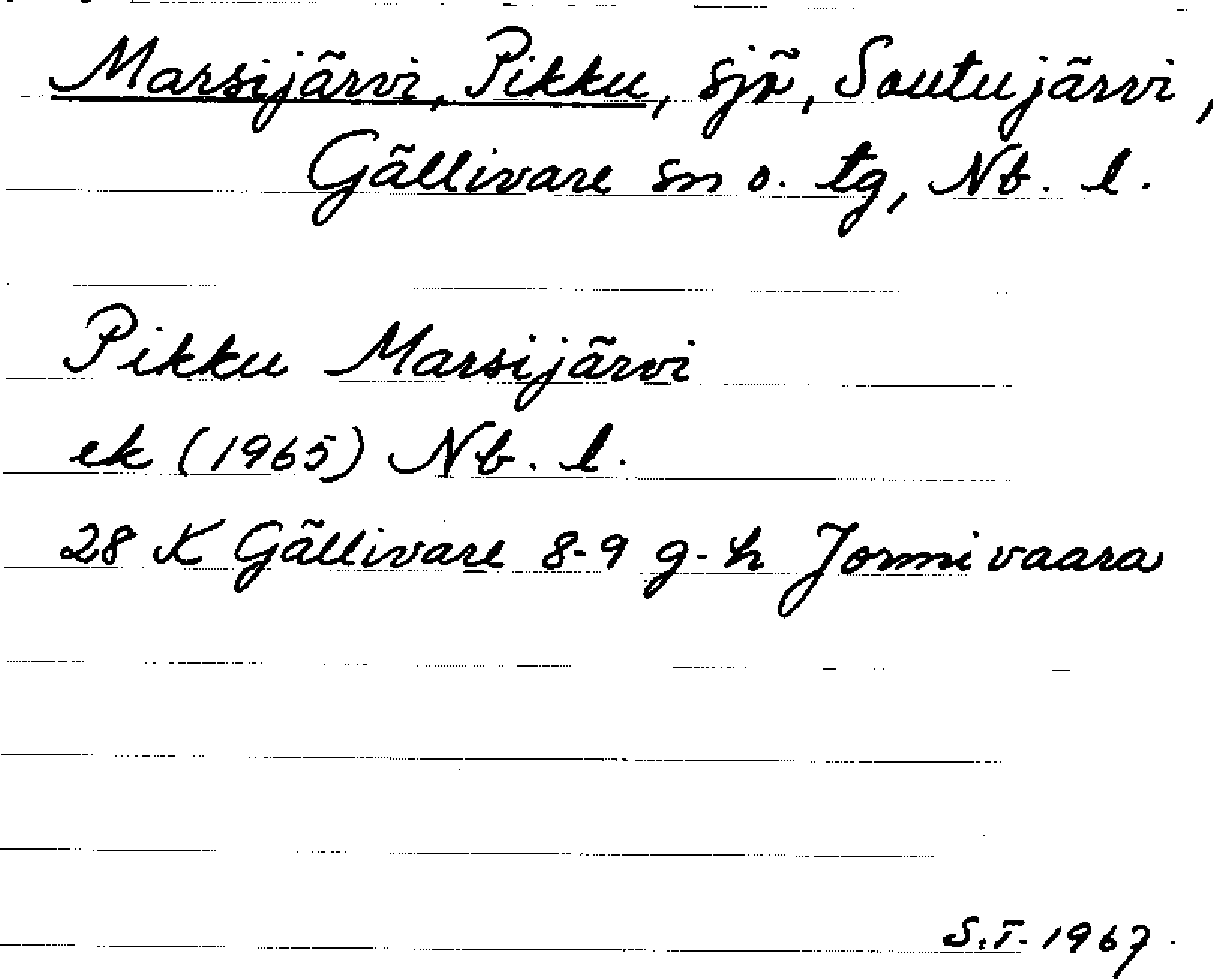 Marsijärvi, Pikku, sjö, Soutujärvi,
Gällivare sn o. tg, Nb. l.
Pikku Marsijärvi
ek (1965) Nb. l.
28 K Gällivare 8-9 g-h Jormivaara
S.T. 1967.